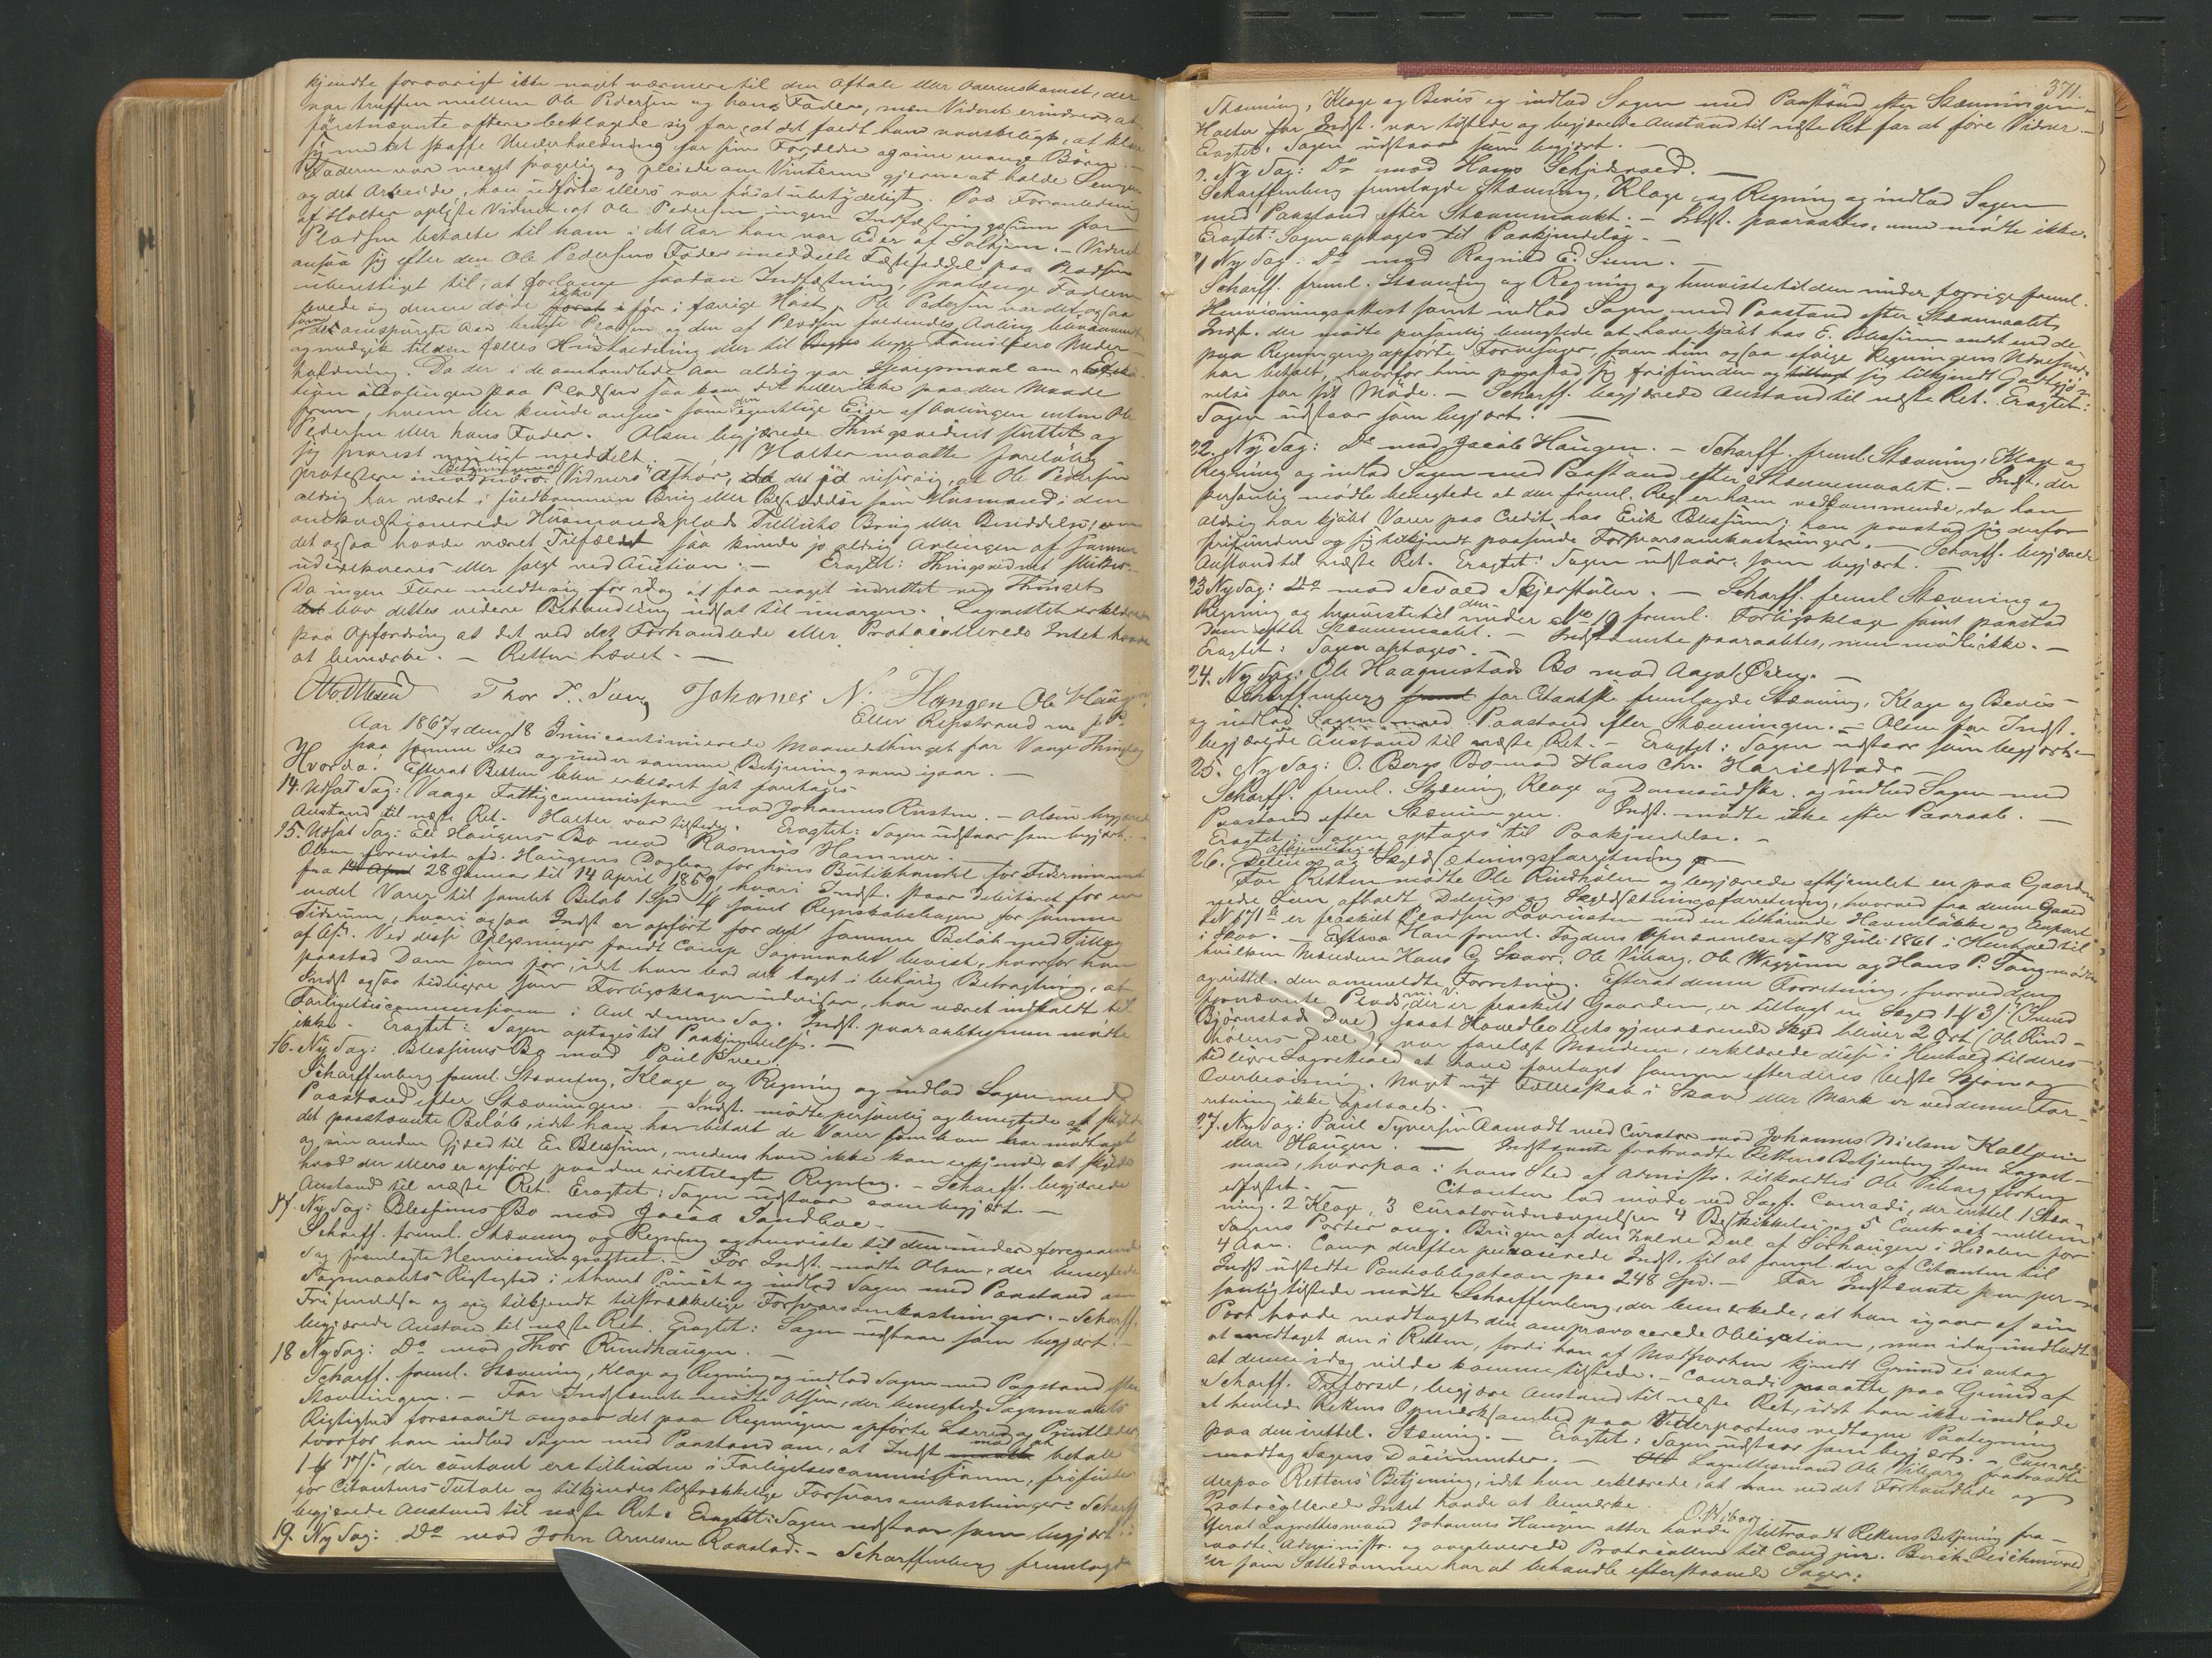 kjendte forøvrigt ikke noget nærmere til den Aftale eller Overenskomst, der
var truffen mellem Ole Pedersen og hans Fader, men Vidnet erindrer, at
førstnævnte oftere beklagede sig for, at det faldt ham vanskeligt, at klare
sig med at skaffe Underholdning for sine Forældre og sine mange Børn. —
Faderen var meget svagelig og pleiede om Vinteren gjerne at holde Sengen
og det Arbeide, han udførte ellers var høist ubetydeligt. Paa Foranledning
af Holter oplyste Vidnet at Ole Pedersen ingen Indfæstningssum for
Pladsen betalte til ham i det Aar han var Eier af Solhjem. — Vidnet
ansaa sig efter den Ole Pedersens Fader meddelte Fæsteseddel paa Pladsen
uberettiget til, at forlange saadan Indfæstning, saalænge Faderen
levede og denne døde ikke før i forrige Høst. Ole Pedersen var det, ogsaa
som i de omspurgte Aar brugte Pladsen og den af Pladsen faldendes Avling
og medgik til den fælles Huusholdning eller til begge Familiers Under-
holdning. Da der i de omhandlede Aar aldrig var Spørgsmaal om
tion i Avlingen paa Pladsen saa kom det heller ikke paa den Maade
frem, hvem der kunde ansees som den egentlige Eier af Avlingen enten Ole
Pedersen eller hans Fader. Olsen begjærede Thingsvidnet sluttet og
sig snarest muligt meddelt. Holter maatte foreløbig
protestere imod Vidners Afhør, da det viser sig, at Ole Pedersen
aldrig har været i fuldkommen Brug eller Besiddelse som Husmand i den
omkvæstionerede Husmandsplads Tilliuts Brug eller Besiddelse, om
det ogsaa havde været Tilfældet saa kunde jo aldrig Avlingen af samme
udexekveres eller sælges ved Auction. — Eragtet: Thingsvidnet sluttes. —
Da ingen Flere meldte sig for idag at faa noget udrettet ved Thinget
blev dettes videre Behandling udsat til imorgen. Lagrettet erklærede
paa Opfordring at det ved det Forhandlede eller Protocollerede Intet havde
at bemærke. — Retten hævet. —
Thor T. Sung Johanes N. Hangen Ole Haugen
Aar 1867, den 18 Juni continuerede Maanedsthinget for Vaage Thinglag
paa samme Sted og under samme Betjening som igaar. —
Hvorda: Efterat Retten blev erklæret sat foretoges
14. Udsat Sag: Vaage Fattigcommission mod Johannes Rusten. — Olsen begjærede
Anstand til næste Ret. Holter var tilstede. Eragtet: Sagen udstaar som begjært. —
15. Udsat Sag: Ole Haugens Bo mod Rasmus Hammer. —
Olsen foreviste afd. Haugens Dagbog for hans Butikhandel for Tidsrummet
fra 28 Januar til 14 April 1859, hvori Indst. staar debiteret for en
del Varer til samlet Beløb 1 Spd 4 samt Regnskabsbogen for samme
Tidsrum, hvori ogsaa Indst er opført for det samme Beløb med Tillæg
af Ved disse Oplysninger fandt Comp Sagsmaalet bevist, hvorfor han
paastod Dom som før, idet han bad det taget i behørig Betragtning, at
Indst. ogsaa tidligere som Forligsklagen udviser, har været indkaldt til
Forligelsescommissionen i Anl. denne Sag. Indst. paaraabtes men mødte
ikke. Eragtet: Sagen optages til Paakjendelse. —
16. Ny Sag: Blessums Bo mod Paul Bræe.
Scharffenberg freml. Stævning, Klage og Regning og indlod Sagen med
Paastand efter Stævningen. — Indst. mødte personlig og benegtede at skylde
det paastævnte Beløb, idet han har betalt de Varer som han har modtaget
og sin anden Gjæld til E. Blessum, medens han ikke kan erkjende at skylde
hvad der ellers er opført paa den irettelagte Regning. — Scharff. begjærede
Anstand til næste Ret. Eragtet: Sagen udstaar som begjært. —
17. Ny Sag: Blessums Bo mod Jacob Sandboe. —
Scharff. freml. Stævning og Regning og henviste til den under foregaaende
Sag fremlagte Henvisningsattest. — For Indst. mødte Olsen, der benegtede
Sagsmaalets Rigtighed i ethvert Punct og indlod Sagen med Paastand om
Frifindelse og sig tilkjendt tilstrækkelige Forsvarsomkostninger. — Scharff.
begjærede Anstand til næste Ret. Eragtet: Sagen udstaar som begjært. —
18 Ny Sag: Do mod Thor Rundhaugen. —
Scharff. freml. Stævning, Klage og Regning og indlod Sagen med Paastand efter
Stævningen. — For Indstævnte mødte Olsen, der benegtede Sagsmaalets
Rigtighed forsaavidt angaar det paa Regningen opførte Lærred og
hvorfor han indlod Sagen med Paastand om, at Indst. mod at betale
der contant er tilbuden i Forligelsescommissionen, frifindes
for Citantens Tiltale og tilkjendes tilstrækkelige Forsvarsomkostninger. Scharff
begjærede Anstand til næste Ret. Eragtet: Sagen udstaar som begjært. —
19. Ny Sag: Do mod John Arnesen Raastad. — Scharffenberg fremlagde
371.
Stævning, Klage og Bevis og indlod Sagen med Paastand efter Stævningen. —
Holter for Indst. var tilstede og begjærede Anstand til næste Ret for at føre Vidner. —
Eragtet: Sagen udstaar som begjært. —
Ny Sag: Do mod Hans Schjiderød. —
Scharffenberg fremlagde Stævning, Klage og Regning og indlod Sagen
med Paastand efter Stævnemaalet. — Indst. paaraabtes, men mødte ikke.
Eragtet: Sagen optages til Paakjendelse. —
21 Ny Sag: Do mod Ragnild E. Sum. —
Scharff. freml. Stævning og Regning og henviste til den under forrige freml.
Henvisningsattest samt indlod Sagen med Paastand efter Stævnemaalet.
Indst. der mødte personlig benegtede at have kjøbt hos E. Blessum andt end de
paa Regningen opførte Tørvesager, som hun ogsaa ifølge Regningens Udvisende
har betalt, hvorfor hun paastod sig frifunden og sig tilkjendt Godtgjø-
relse for sit Møde. — Scharff. begjærede Anstand til næste Ret. Eragtet:
Sagen udstaar som begjært. —
22. Ny Sag: Do mod Jacob Haugen. — Scharff. freml. Stævning, Klage og
Regning og indlod Sagen med Paastand efter Stævnemaalet. — Indst. der
personlig mødte benegtede at den freml. Reg. er ham vedkommende, da han
aldrig har kjøbt Varer paa Credit hos Erik Blessum; han paastod sig derfor
frifunden og sig tilkjendt passende Forsvarsomkostninger. — Scharff. begjærede
Anstand til næste Ret. Eragtet: Sagen udstaar som begjært. —
23 Ny Sag: Do mod Sevald Skjerstulen. — Scharff. freml. Stævning og
Regning og henviste til den under No 19 freml. Forligsklage samt paastod
Dom efter Stævnemaalet. — Indstævnte paaraabtes, men mødte ikke. —
Eragtet: Sagen optages. —
24. Ny Sag: Ole Haagenstads Bo mod Aagot Øien. —
Scharffenberg for Citantsk. fremlagde Stævning, Klage og Bevis —
og indlod Sagen med Paastand efter Stævningen. — Olsen for Indst.
begjærede Anstand til næste Ret. — Eragtet: Sagen udstaar som begjært. —
25. Ny Sag: O. Bergs Bo mod Hans Chr. Harildstad. —
Scharff. freml. Stævning, Klage og Domsudskr. og indlod Sagen med
Paastand efter Stævningen. Indst. mødte ikke efter Paaraab. —
Eragtet: Sagen optages til Paakjendelse. —
26. Afhjemling af Delings og Skyldsætningsforretning —
For Retten mødte Ole Rindhølen og begjærede afhjemlet en paa Gaarden
nedre Sem afholdt Delings og Skyldsætningsforretning, hvorved fra denne Gaard
L No 171 a er fraskilt Pladsen Løvrusten med en tilhørende Havneløkke og Anpart
i Skov. — Han freml. Fogdens Opnævnelse af 18 Juli 1861 i Henhold til
hvilken Mændene Hans G Skaar, Ole Viborg, Ole Wiggum og Hans P. Tang mødte
og rettel. den anmeldte Forretning. Efterat denne Forretning, hvorved den
fornævnte Plads m. V. der er fraskilt Gaarden, er tillagt en Skyld 1 ₰ 3 ß (Svend
Bjørnstads Deel) samt Hovedbøllets gjenværende Skyld bliver 2 Ort (Ole Rind-
hølens Deel), var forelæst Mændene, erklærede disse i Henhold til deres
tidligere Lagretteed at have foretaget samme efter deres bedste Skjøn og
Overbevisning. Noget nyt Fællesskab i Skov eller Mark er ved denne For-
retning ikke opstaaet. —
27. Ny Sag: Paul Syversen Aamodt med Curator mod Johannes Nielsen Kalløien
eller Haugen. — Indstævnte fratraadte Rettens Betjening som Lagret-
mand, hvorpaa i hans Sted af Administr. tilkaldtes Ole Viborg førhen
edfæstet. — Citanten lod møde ved Sagf. Conradi, der irettel. 1 Stæv-
ning. 2 Klage, 3 Curatorudnævnelse 4 Beskikkelse og 5 Contract mellem
Sagens Parter ang. Brugen af den halve Deel af Sørhaugen i Hedalen for
4 Aar. Comp derefter provocerede Indst. til at freml. den af Citanten til
Indst. udstedte Panteobligation paa 248 Spd. — For Indstævnte som per-
sonlig tilstede mødte Scharffenberg, der bemærkede, at han igaar af sin
Part havde modtaget den omprovocerede Obligation, men idag undladt
at medtaget den i Retten, fordi han af Modparten kjendt Grund ei antog
at denne idag vilde komme tilstede. — Conradi maatte paa Grund af
Scharff. Tilførsel, begjære Anstand til næste Ret, idet han ikke undlade
at henlede Rettens Opmærksomhed paa Vederpartens vedtagne Paategning
paa den irettel. Stævning. — Eragtet: Sagen udstaar som begjært. — Conradi
modtog Sagens Documenter. — Lagrettesmand Ole Viborg fratraadte
derpaa Rettens Betjening, idet han erklærede, at han ved det Forhandlede og
Protocollerede Intet havde at bemærke. O. Wiborg
Efterat Lagrettesmand Johannes Haugen atter havde tiltraadt Rettens Betjening fra-
traadte Administr. og overleverede Protocollen til Cand. jur.
der som Sættedommer har at behandle efterstaaende Sager: